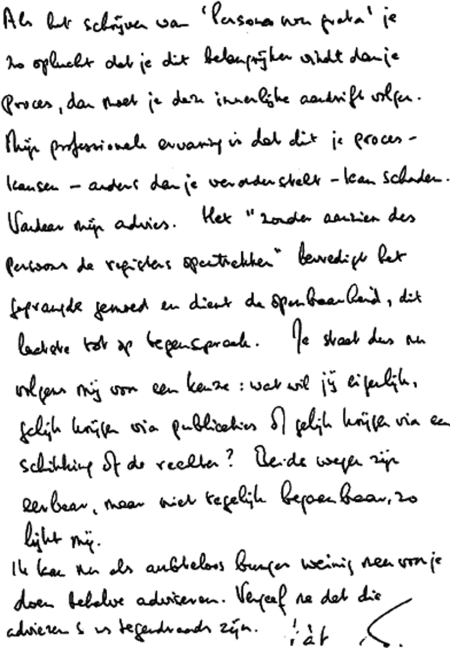 Als het schrijven van 'Persona non grata' je
zo oplucht dat je dit belangrijker vindt dan je
proces, dan moet je deze innerlijke aandrift volgen.
Mijn professionele ervaring is dat dit je proces-
kansen – anders dan je veronderstelt – kan schaden.
Vandaar mijn advies. Het "zonder aanzien des
persoons de registers opentrekken" bevredigt het
geprangde gemoed en dient de openbaarheid, dit
laatste tot op tegenspraak. Je staat dus nu
volgens mij voor een keuze: wat wil jij eigenlijk,
gelijk krijgen via publicaties of gelijk krijgen via een
schikking of de rechter? Beide wegen zijn
eerbaar, maar niet tegelijk begaanbaar, zo
lijkt mij.
Ik kan nu als ambteloos burger weinig meer voor je
doen behalve adviseren. Vergeef me dat die
adviezen s tegendraads zijn.